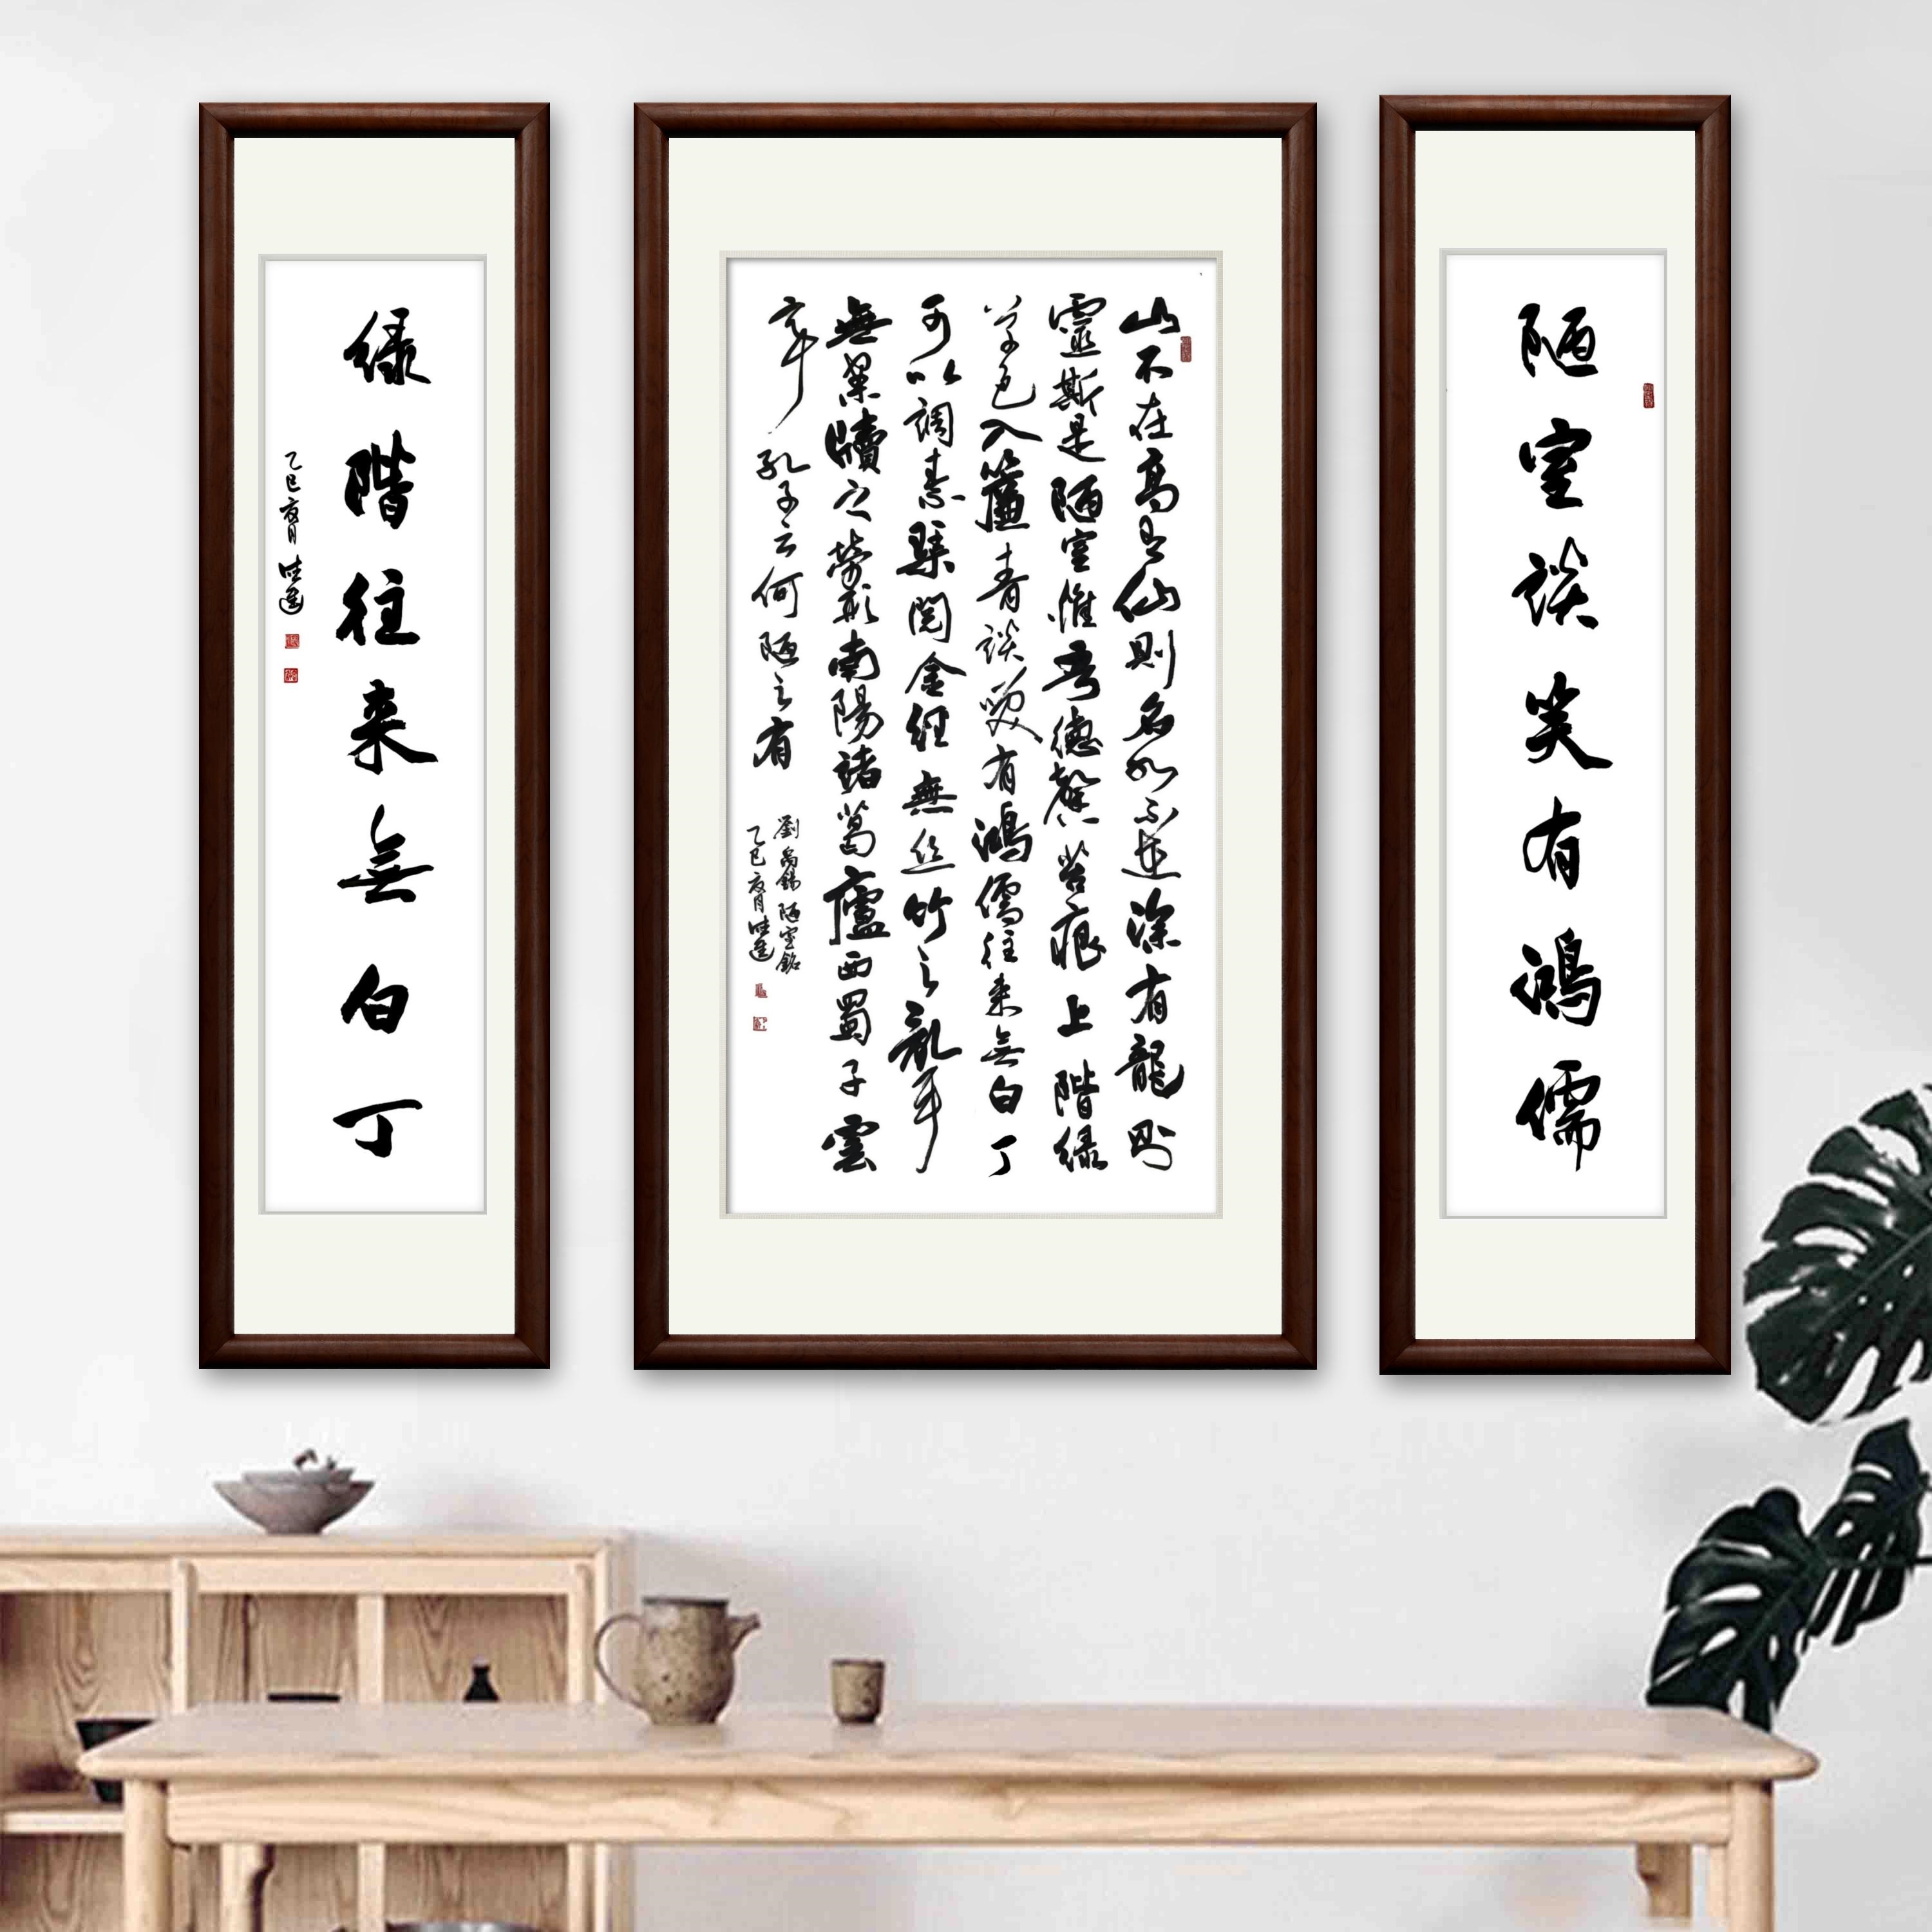 陋室談笑有鴻儒
山不在高有仙則名水不在深有龍則
靈斯是陋室惟吾德馨苔痕上階绿
草色入簾青談笑有鴻儒往来無白丁
可以調素琴閱金經無丝竹之亂耳
無案牘之勞形南陽諸葛廬西蜀子雲
亭孔子云何陋之有
劉禹錫陋室銘
乙巳夏月
绿階往来無白丁
乙巳夏月